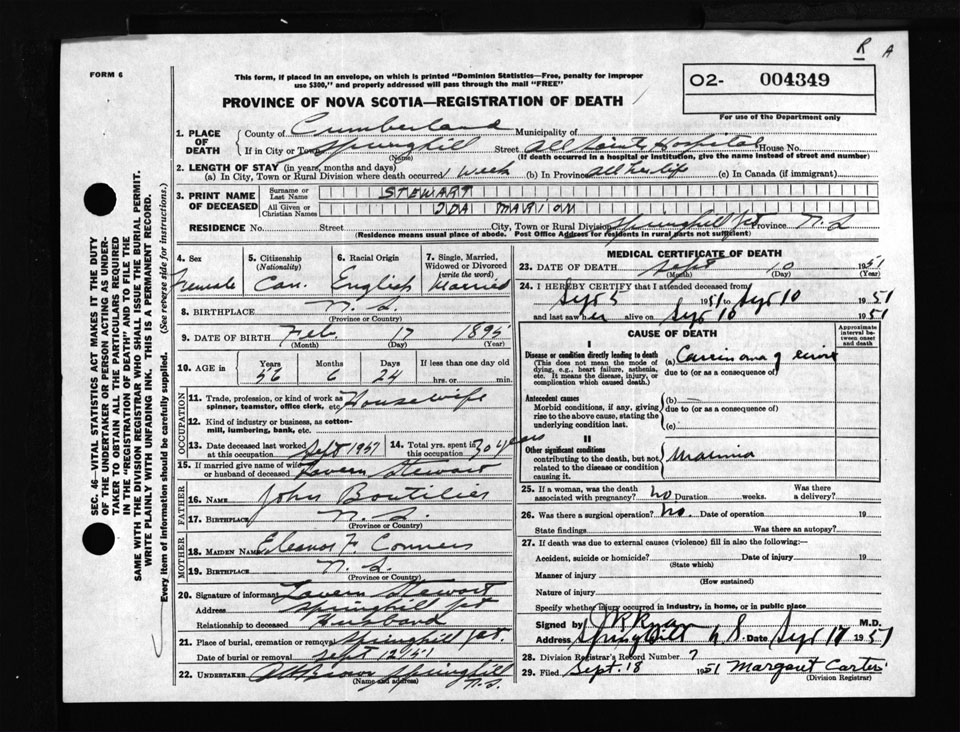 R A
FORM 6
This form, if placed in an envelope, on which is printed "Dominion Statistics—Free, penalty for improper
use $300," and properly addressed will pass through the mail "FREE"
O2- 004349
For use of the Department only
PROVINCE OF NOVA SCOTIA—REGISTRATION OF DEATH
1. PLACE OF DEATH County of Cumberland Municipality of
If in City or Town Springhill (Name) Street All Saints Hospital House No.
(If death occurred in a hospital or institution, give the name instead of street and number)
2. LENGTH OF STAY (in years, months and days)
(a) In City, Town or Rural Division where death occurred 1 week (b) In Province All her life (c) In Canada (if immigrant)
3. PRINT NAME OF DECEASED Surname or Last Name STEWART
All Given or Christian Names IDA MARION
RESIDENCE No. Street City, Town or Rural Division Springhill Jct Province N.S.
(Residence means usual place of abode. Post Office Address for residents in rural parts not sufficient)
SEC. 46—VITAL STATISTICS ACT MAKES IT THE DUTY
OF THE UNDERTAKER OR PERSON ACTING AS UNDER-
TAKER TO OBTAIN ALL THE PARTICULARS REQUIRED
IN THE "REGISTRATION OF DEATH" AND TO FILE THE
SAME WITH THE DIVISION REGISTRAR WHO SHALL ISSUE THE BURIAL PERMIT.
WRITE PLAINLY WITH UNFADING INK. THIS IS A PERMANENT RECORD.
Every item of information should be carefully supplied. (See reverse side for instructions.)
4. Sex Female
5. Citizenship (Nationality) Can.
6. Racial Origin English
7. Single, Married, Widowed or Divorced (write the word) Married
8. BIRTHPLACE N.S.
(Province or Country)
9. DATE OF BIRTH Feb. 17 1895
(Month) (Day) (Year)
10. AGE in Years 56 Months 6 Days 24 If less than one day old
hrs. or min.
OCCUPATION
11. Trade, profession, or kind of work as
spinner, teamster, office clerk, etc. Housewife
12. Kind of industry or business, as cotton-
mill, lumbering, bank, etc.
13. Date deceased last worked at this occupation Sept 1951
14. Total yrs. spent in this occupation 30 years
15. If married give name of wife or husband of deceased Lavern Stewart
FATHER
16. NAME John Boutilier
17. BIRTHPLACE N.S.
(Province or Country)
MOTHER
18. MAIDEN NAME Eleanor F. Conners
19. BIRTHPLACE N.S.
(Province or Country)
20. Signature of informant Lavern Stewart
Address Springhill Jct
Relationship to deceased Husband
21. Place of burial, cremation or removal Springhill Jct.
Date of burial or removal Sept 12/51
22. UNDERTAKER Brown Springhill N.S.
(Name and address)
MEDICAL CERTIFICATE OF DEATH
23. DATE OF DEATH Sept 10 1951
(Month) (Day) (Year)
24. I HEREBY CERTIFY that I attended deceased from
Sept 5 1951 to Sept 10 1951
and last saw her alive on Sept 10 1951
CAUSE OF DEATH
Approximate interval between onset and death
I
Disease or condition directly leading to death
(This does not mean the mode of
dying, e.g., heart failure, asthenia,
etc. It means the disease, injury, or
complication which caused death.)
(a) Carcinoma of
due to (or as a consequence of)
Antecedent causes
Morbid conditions, if any, giving
rise to the above cause, stating the
underlying condition last.
(b) —
due to (or as a consequence of)
(c)
II
Other significant conditions
contributing to the death, but not
related to the disease or condition
causing it.
25. If a woman, was the death associated with pregnancy? no Duration weeks. Was there a delivery?
26. Was there a surgical operation? no. Date of operation 19
State findings Was there an autopsy?
27. If death was due to external causes (violence) fill in also the following:—
Accident, suicide or homicide? Date of injury 19
(State which)
Manner of injury
(How sustained)
Nature of injury
Specify whether injury occurred in industry, in home, or in public place
Signed by J R Ryan M.D.
Address Springhill N.S. Date Sept 17 1951
28. Division Registrar's Record Number 7
29. Filed Sept. 18 1951 Margaret Carter
(Division Registrar)